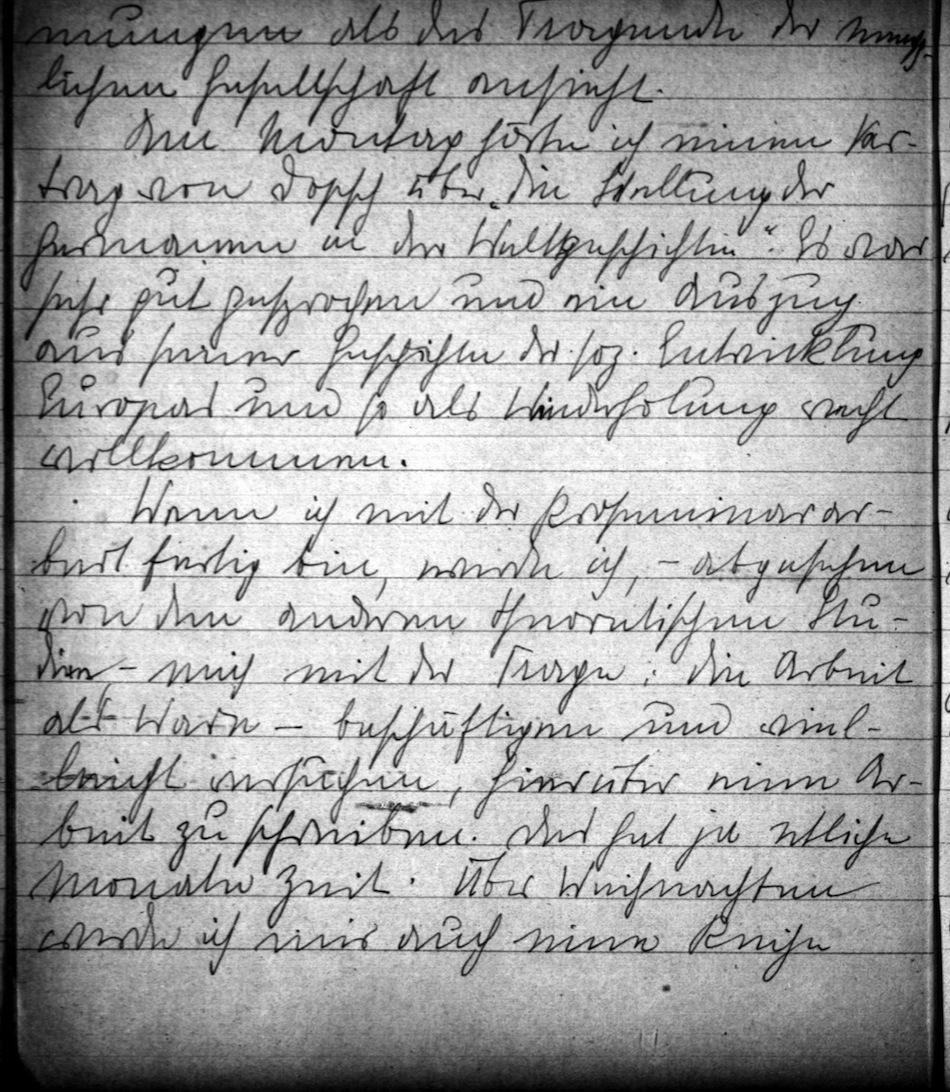 nungen als das Tragende der mensch-
lichen Gesellschaft ansieht.
Am Montag hörte ich einen Vor-
trag von Dopsch über „Die Stellung der
Germanen in der Weltgeschichte“. Es war
sehr gut gesprochen und ein Auszug
aus seiner Geschichte der soz. Entwicklung
Europas und so als Wiederholung recht
willkommen.
Wenn ich mit der Proseminarar-
beit fertig bin, werde ich, – abgesehen
von den anderen theoretischen Stu-
dien, – mich mit der Frage: die Arbeit
als Ware – beschäftigen und viel-
leicht versuchen, hierüber eine Ar-
beit zu schreiben. Das hat ja etliche
Monate Zeit. Über Weihnachten
werde ich mir auch eine Reihe